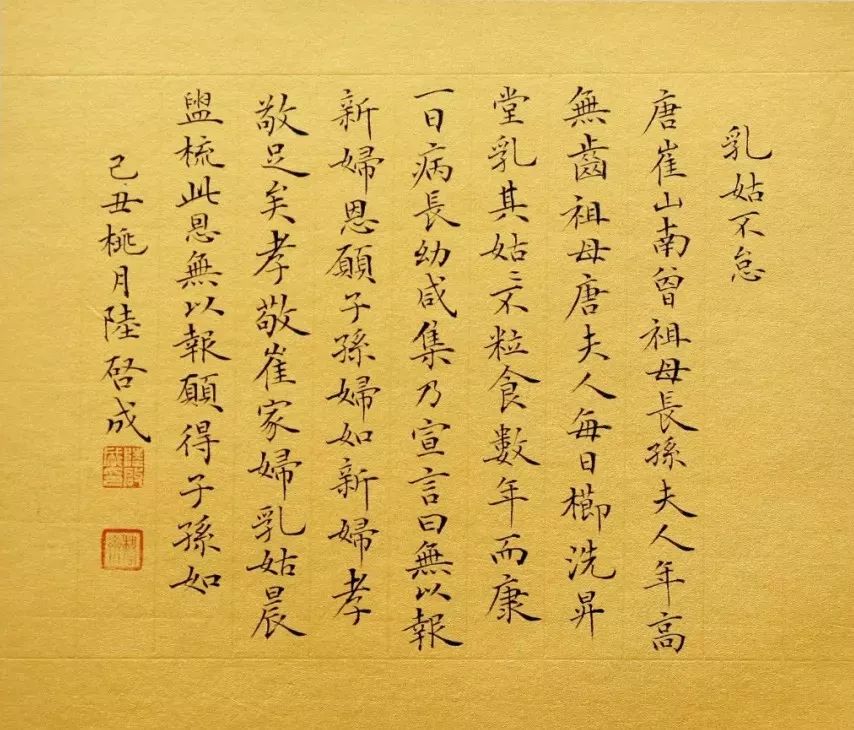 乳姑不怠
唐崔山南曾祖母長孫夫人年高
無齒祖母唐夫人每日櫛洗昇
堂乳其姑〻不粒食數年而康
一日病長幼咸集乃宣言曰無以報
新婦恩願子孫婦如新婦孝
敬足矣孝敬崔家婦乳姑晨
盥梳此恩無以報願得子孫如
己丑桃月陸啓成